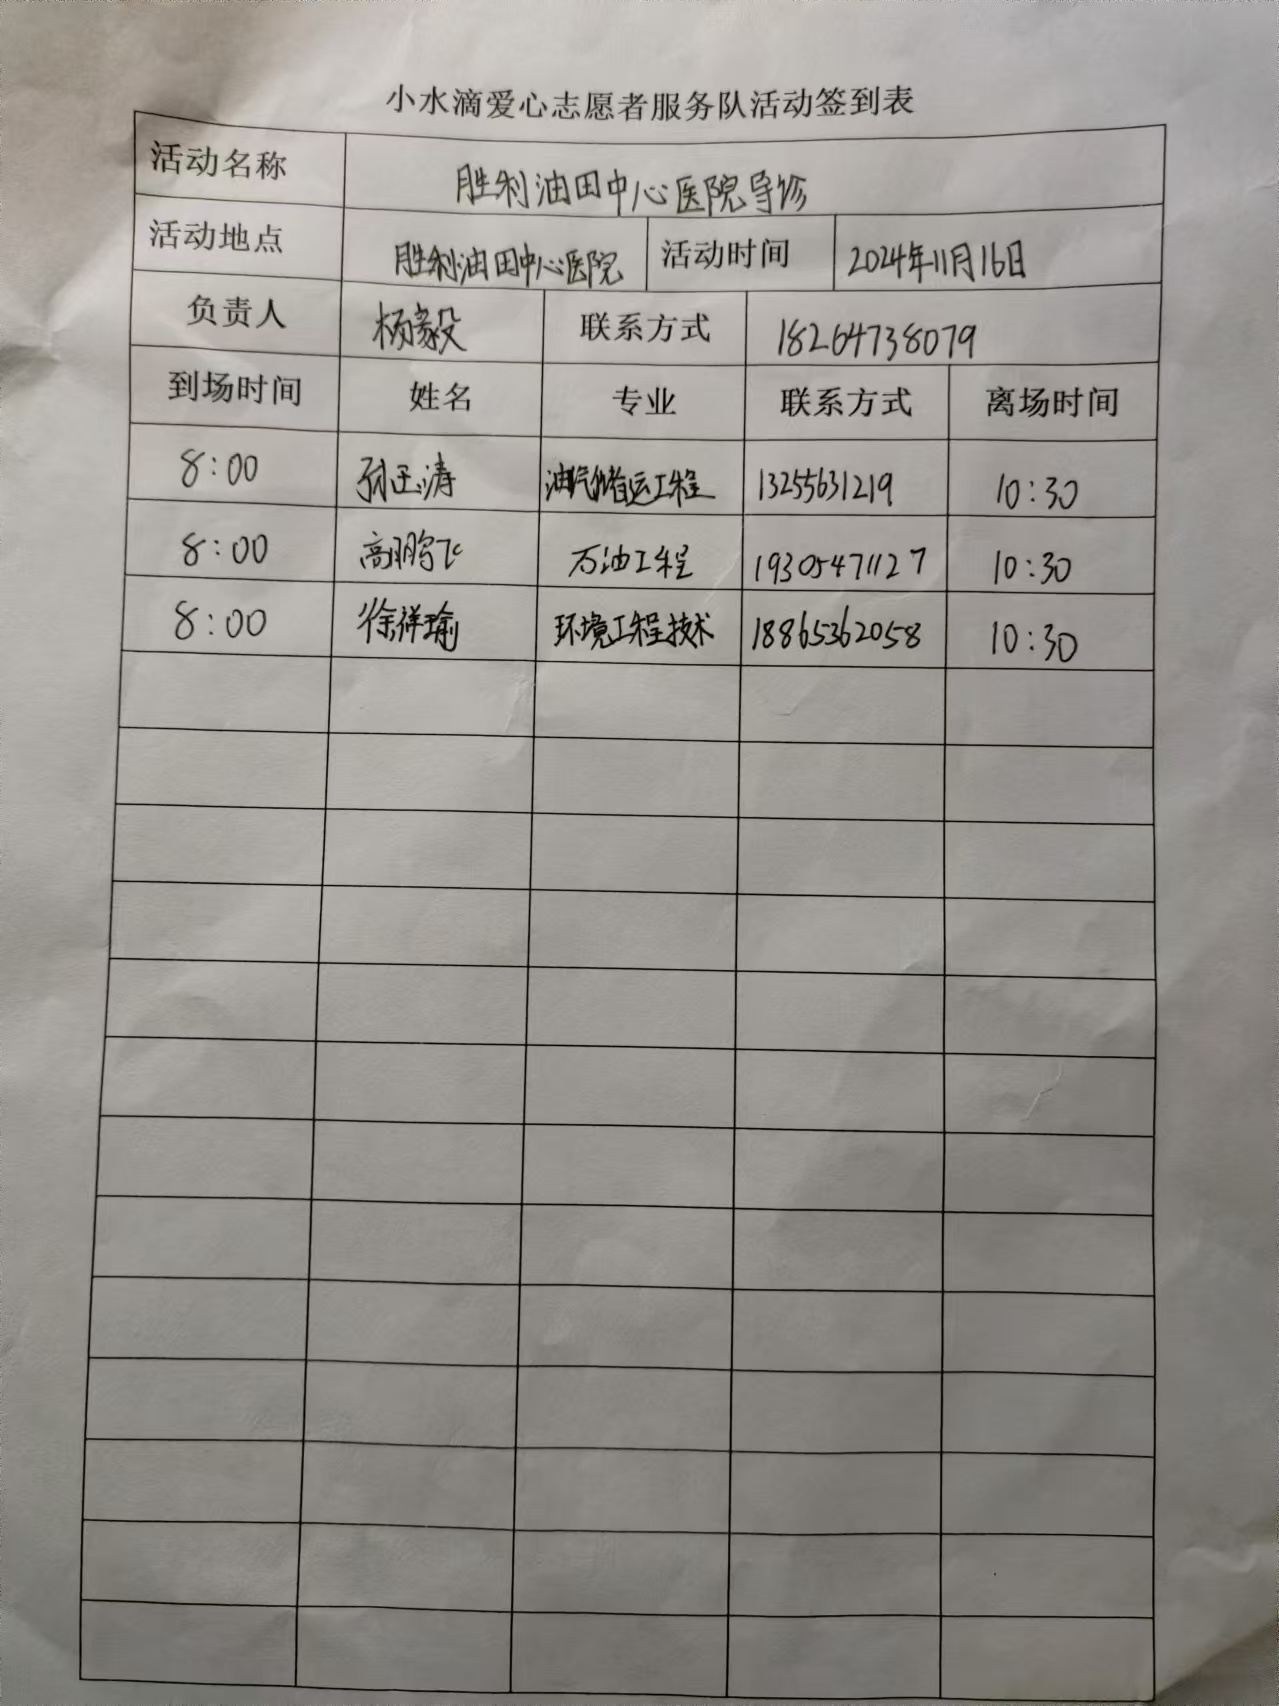 小水滴爱心志愿者服务队活动签到表
活动名称 胜利油田中心医院导诊
活动地点 胜利油田中心医院 活动时间 2024年11月16日
负责人 杨毅 联系方式 18264738079
到场时间 姓名 专业 联系方式 离场时间
8:00 孙玉涛 油气储运工程 13255631219 10:30
8:00 高鹏飞 石油工程 19305471127 10:30
8:00 徐祥瑜 环境工程技术 18865362058 10:30